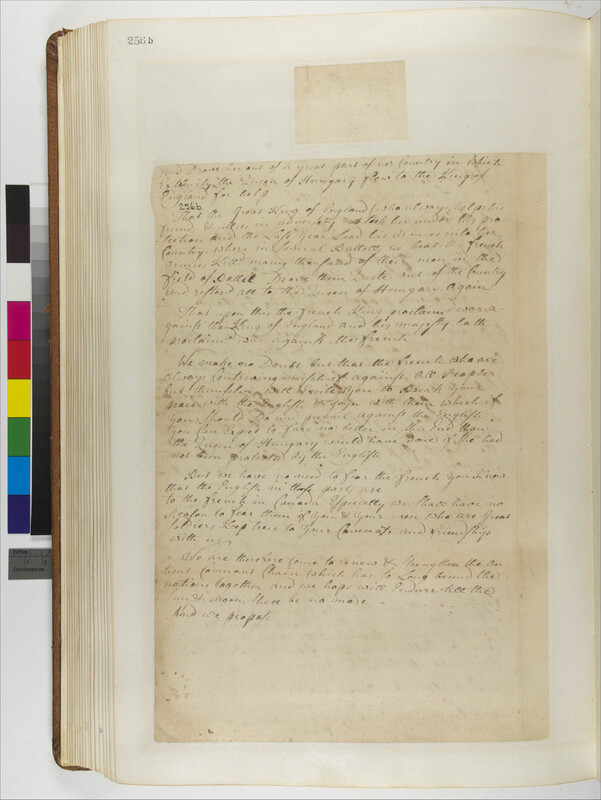 256b
and Drove her out of a great part of her Country in which
Extremity the Queen of Hungary flew to the King of
England for help
256b
That the Great King of England (who always helps his
friend & allies in adversity) took her under his pro
tection and the Last Year Lead his armies into her
Country where in Several Battels he beat the french
armies kill'd many thousand of their men in the
field of Battel Drove them Quite out of the Country
and restord all to the Queen of Hungary again
That upon this the french King proclaimd war a-
gainst the King of England and his majesty hath
proclaimd war against the french
We make no Doubt but that the french who are
always Contriving mischief against all People
but themselves will Excite you to Break Your
peace with the English & Joyn with them which if
you Should Do and prevail against the English
You Can Expect to fare no better in the End than
the Queen of Hungary would have done if She had
not been protected by the English
But we have no need to fear the french You know
that the English in these parts are
to the french in Canada Especially we Shall have no
Reason to fear them if you & Your men who are Great
Soldiers keep true to Your Covenants and friendship
with us
We are therefore Come to renew & Strengthen the an
tient Covenant Chain which has so Long bound the
nations together and we hope will Endure till the
Sun & moon Shall be no more
And we propose
Inches
Centimetres